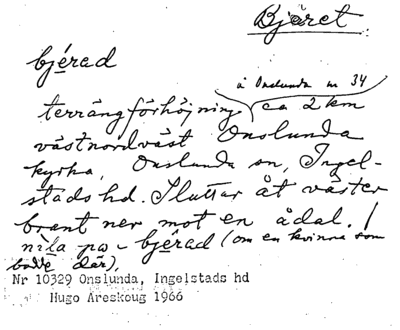 Bjäret
bjérad
å Onslunda nr 34
terrängförhöjning ca 2 km
västnordväst Onslunda
kyrka, Onslunda sn, Ingel-
stads hd. Sluttar åt väster
brant ner mot en ådal. /
nila pa - bjérad (om en kvinna som
bodde där).
Nr 10329 Onslunda, Ingelstads hd
Hugo Areskoug 1966